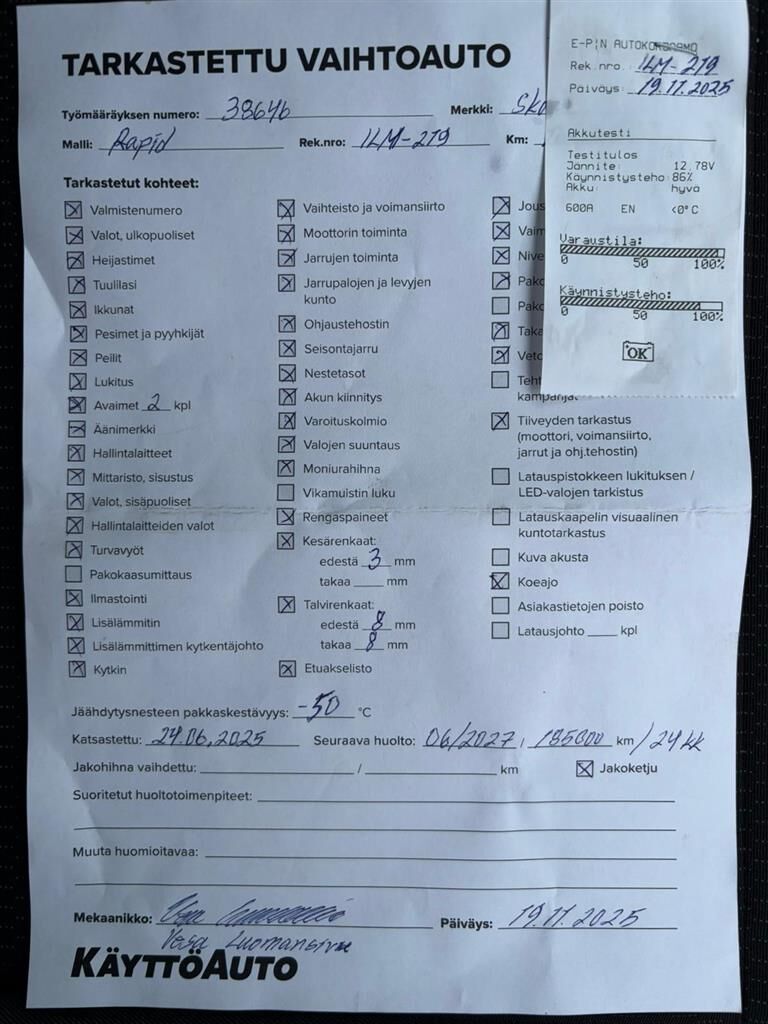 TARKASTETTU VAIHTOAUTO
Työmääräyksen numero: 38646 Merkki: Sko
Malli: Rapid Rek.nro: ILM-219 Km:
Tarkastetut kohteet:
Valmistenumero
Valot, ulkopuoliset
Heijastimet
Tuulilasi
Ikkunat
Pesimet ja pyyhkijät
Peilit
Lukitus
Avaimet 2 kpl
Äänimerkki
Hallintalaitteet
Mittaristo, sisustus
Valot, sisäpuoliset
Hallintalaitteiden valot
Turvavyöt
Pakokaasumittaus
Ilmastointi
Lisälämmitin
Lisälämmittimen kytkentäjohto
Kytkin
Vaihteisto ja voimansiirto
Moottorin toiminta
Jarrujen toiminta
Jarrupalojen ja levyjen
kunto
Ohjaustehostin
Seisontajarru
Nestetasot
Akun kiinnitys
Varoituskolmio
Valojen suuntaus
Moniurahihna
Vikamuistin luku
Rengaspaineet
Kesärenkaat:
edestä 3 mm
takaa mm
Talvirenkaat:
edestä 8 mm
takaa 8 mm
Etuakselisto
Jous
Vaim
Nive
Pako
Pako
Taka
Veto
Teht
kampanjat
Tiiveyden tarkastus
(moottori, voimansiirto,
jarrut ja ohj.tehostin)
Latauspistokkeen lukituksen /
LED-valojen tarkistus
Latauskaapelin visuaalinen
kuntotarkastus
Kuva akusta
Koeajo
Asiakastietojen poisto
Latausjohto kpl
Jäähdytysnesteen pakkaskestävyys: -50 °C
Katsastettu: 24.06.2025 Seuraava huolto: 06/2027, 195000 km / 24 kk
Jakohihna vaihdettu: / km Jakoketju
Suoritetut huoltotoimenpiteet:
Muuta huomioitavaa:
Mekaanikko: Päiväys: 19.11.2025
Vesa
KÄYTTÖAUTO
E-P:N AUTOKORJAAMO
Rek.nro. ILM-219
Päiväys: 19.11.2025
Akkutesti
Testitulos
Jännite: 12.78V
Käynnistysteho: 86%
Akku: hyvä
600A EN <0°C
Varaustila:
0 50 100%
Käynnistysteho:
0 50 100%
OK